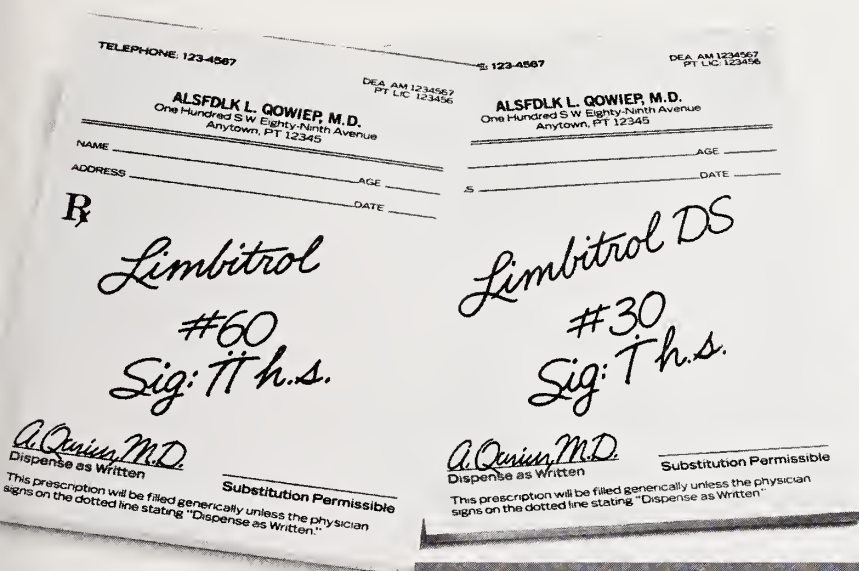 TELEPHONE: 123-4567
DEA AM 1234567
PT LIC 123456
ALSFDLK L. QOWIEP, M.D.
One Hundred S W Eighty-Ninth Avenue
Anytown, PT 12345
NAME AGE
ADDRESS DATE
Rx
Limbitrol
#60
Sig: ÏÏ h.s.
A. Qarius, M.D.
Dispense as Written
Substitution Permissible
This prescription will be filled generically unless the physician
signs on the dotted line stating "Dispense as Written."
E: 123-4567
DEA AM 1234567
PT LIC 123456
ALSFDLK L. QOWIEP, M.D.
One Hundred S W Eighty-Ninth Avenue
Anytown, PT 12345
AGE
S DATE
Limbitrol DS
#30
Sig: İ h.s.
A. Qarius, M.D.
Dispense as Written
Substitution Permissible
This prescription will be filled generically unless the physician
signs on the dotted line stating "Dispense as Written"